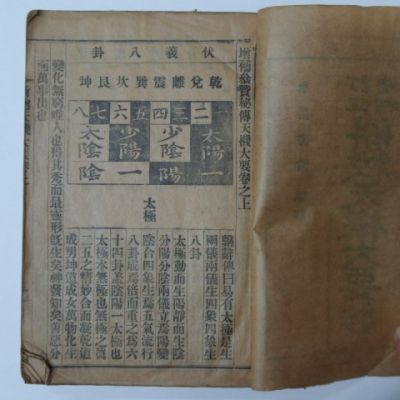 增補參贊秘傳天機大要卷之上
伏羲八卦
乾兌離震巽坎艮坤
一二三四五六七八
太陽少陰少陽太陰
陽陰
太極
繫辭傳曰易有太極是生
兩儀兩儀生四象四象生
八卦
太極動而生陽靜而生陰
分陽分陰兩儀立焉陽變
陰合四象生焉五氣流行
八卦成焉倍而重之爲六
十四卦蓋陰陽一太極也
太極本無極也無極之眞
二五之精妙合而凝乾道
成男坤道成女萬物化生
變化無窮唯人也得其秀而最靈形旣生矣神發知矣善惡分
萬事出也